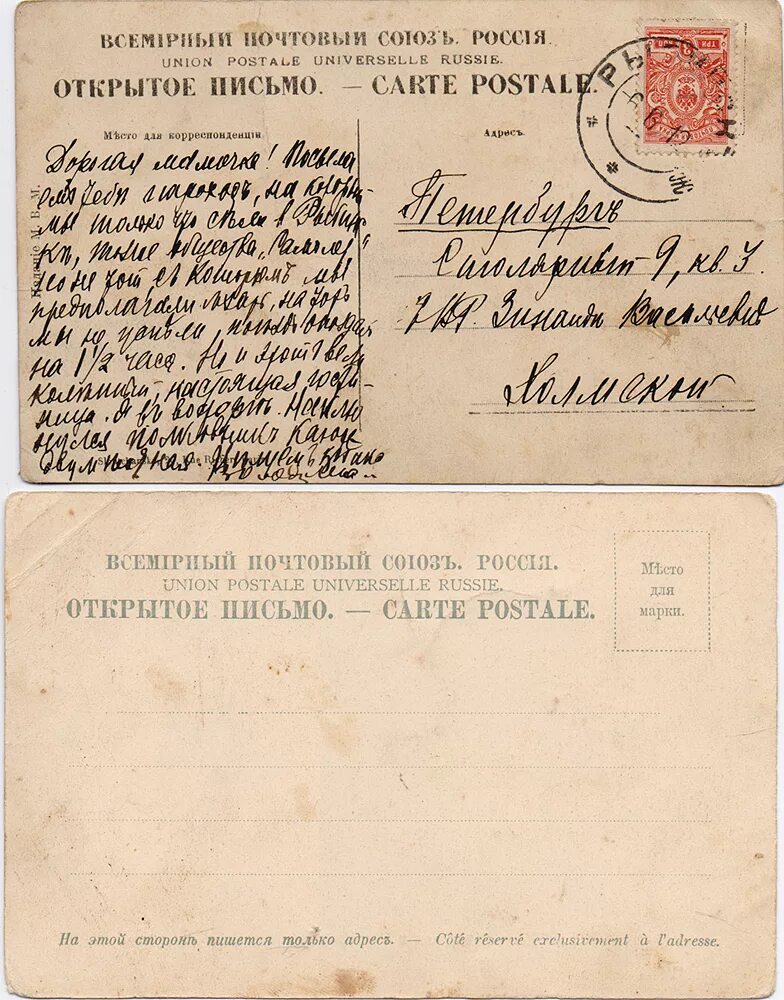 ВСЕМІРНЫЙ ПОЧТОВЫЙ СОЮЗЪ. РОССІЯ
UNION POSTALE UNIVERSELLE RUSSIE.
ОТКРЫТОЕ ПИСЬМО. — CARTE POSTALE.
Мѣсто для корреспонденціи
Дорогая мамочка! Посыла
емъ тебѣ пароходъ, на которо
мы только что сѣли в Рыбин
скѣ, общества „Самолет"
но не тот съ которымъ мы
предполагали ѣхать, на тотъ
мы не успѣли, поѣздъ опоздал
на 1 1/2 часа. Но и этот вели
колѣпный, настоящая гости-
ница. Я въ восторгѣ.
каюта
двумѣстная.
Изданіе М. В. М.
Адресъ.
Петербургъ
Столярный 9, кв. 3.
ЕВР. Зинаидѣ Васильевнѣ
Холмской
ТРИ КОП
ВСЕМІРНЫЙ ПОЧТОВЫЙ СОЮЗЪ. РОССІЯ.
UNION POSTALE UNIVERSELLE RUSSIE.
ОТКРЫТОЕ ПИСЬМО. — CARTE POSTALE.
Мѣсто
для
марки.
На этой сторонѣ пишется только адресъ. — Côté réservé exclusivement à l'adresse.